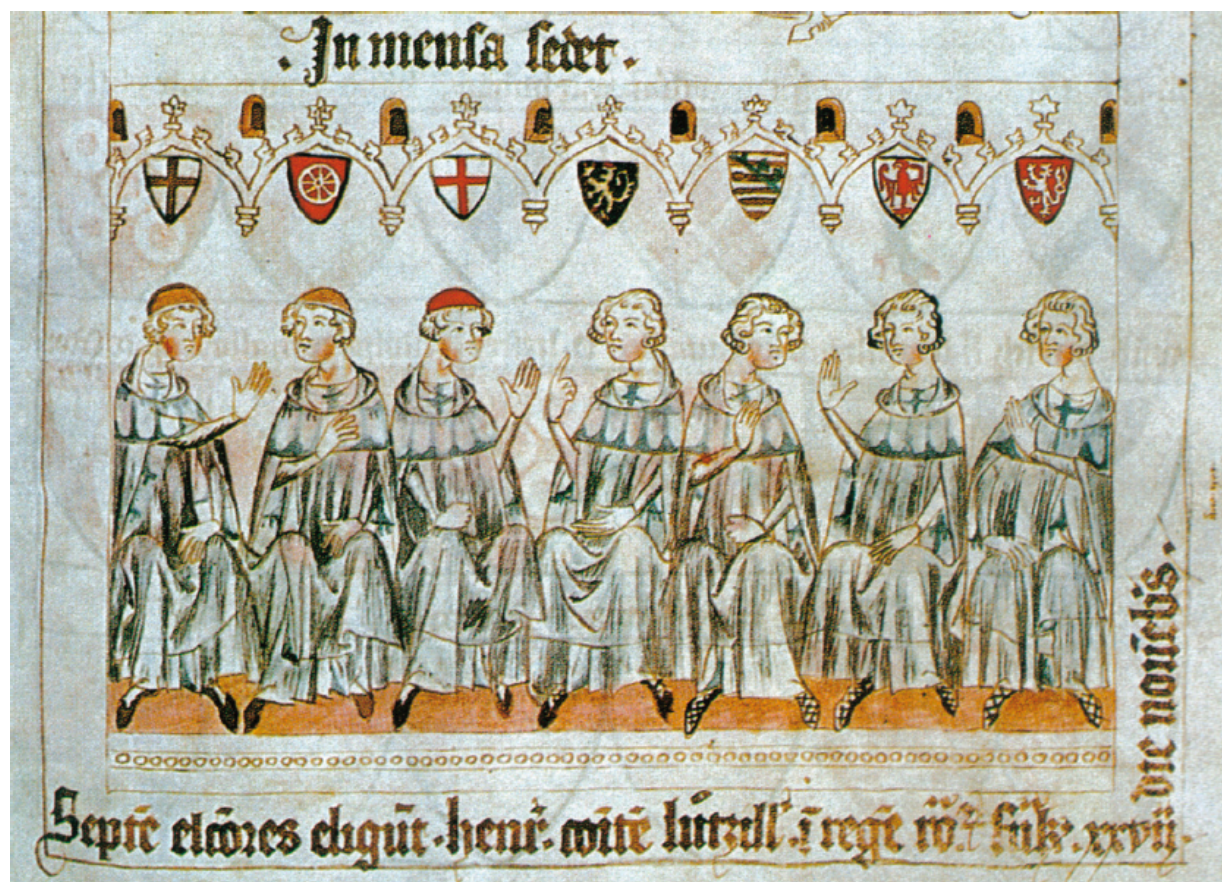 . In mensa sedet .
Septē elcōres eligūt . henr̄ . cōitē lutzill' . ī regē rō . xxvii .
die novēbis .